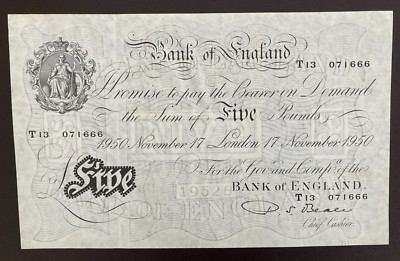 Bank of England
T13 071666
I Promise to pay the Bearer on Demand
the Sum of Five Pounds
T13 071666
1950 November 17 London 17 November 1950
For the Gov.r and Comp.a of the
BANK OF ENGLAND.
Five
T13 071666
Chief Cashier.